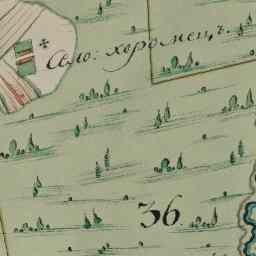 Село: хоромецъ.
36